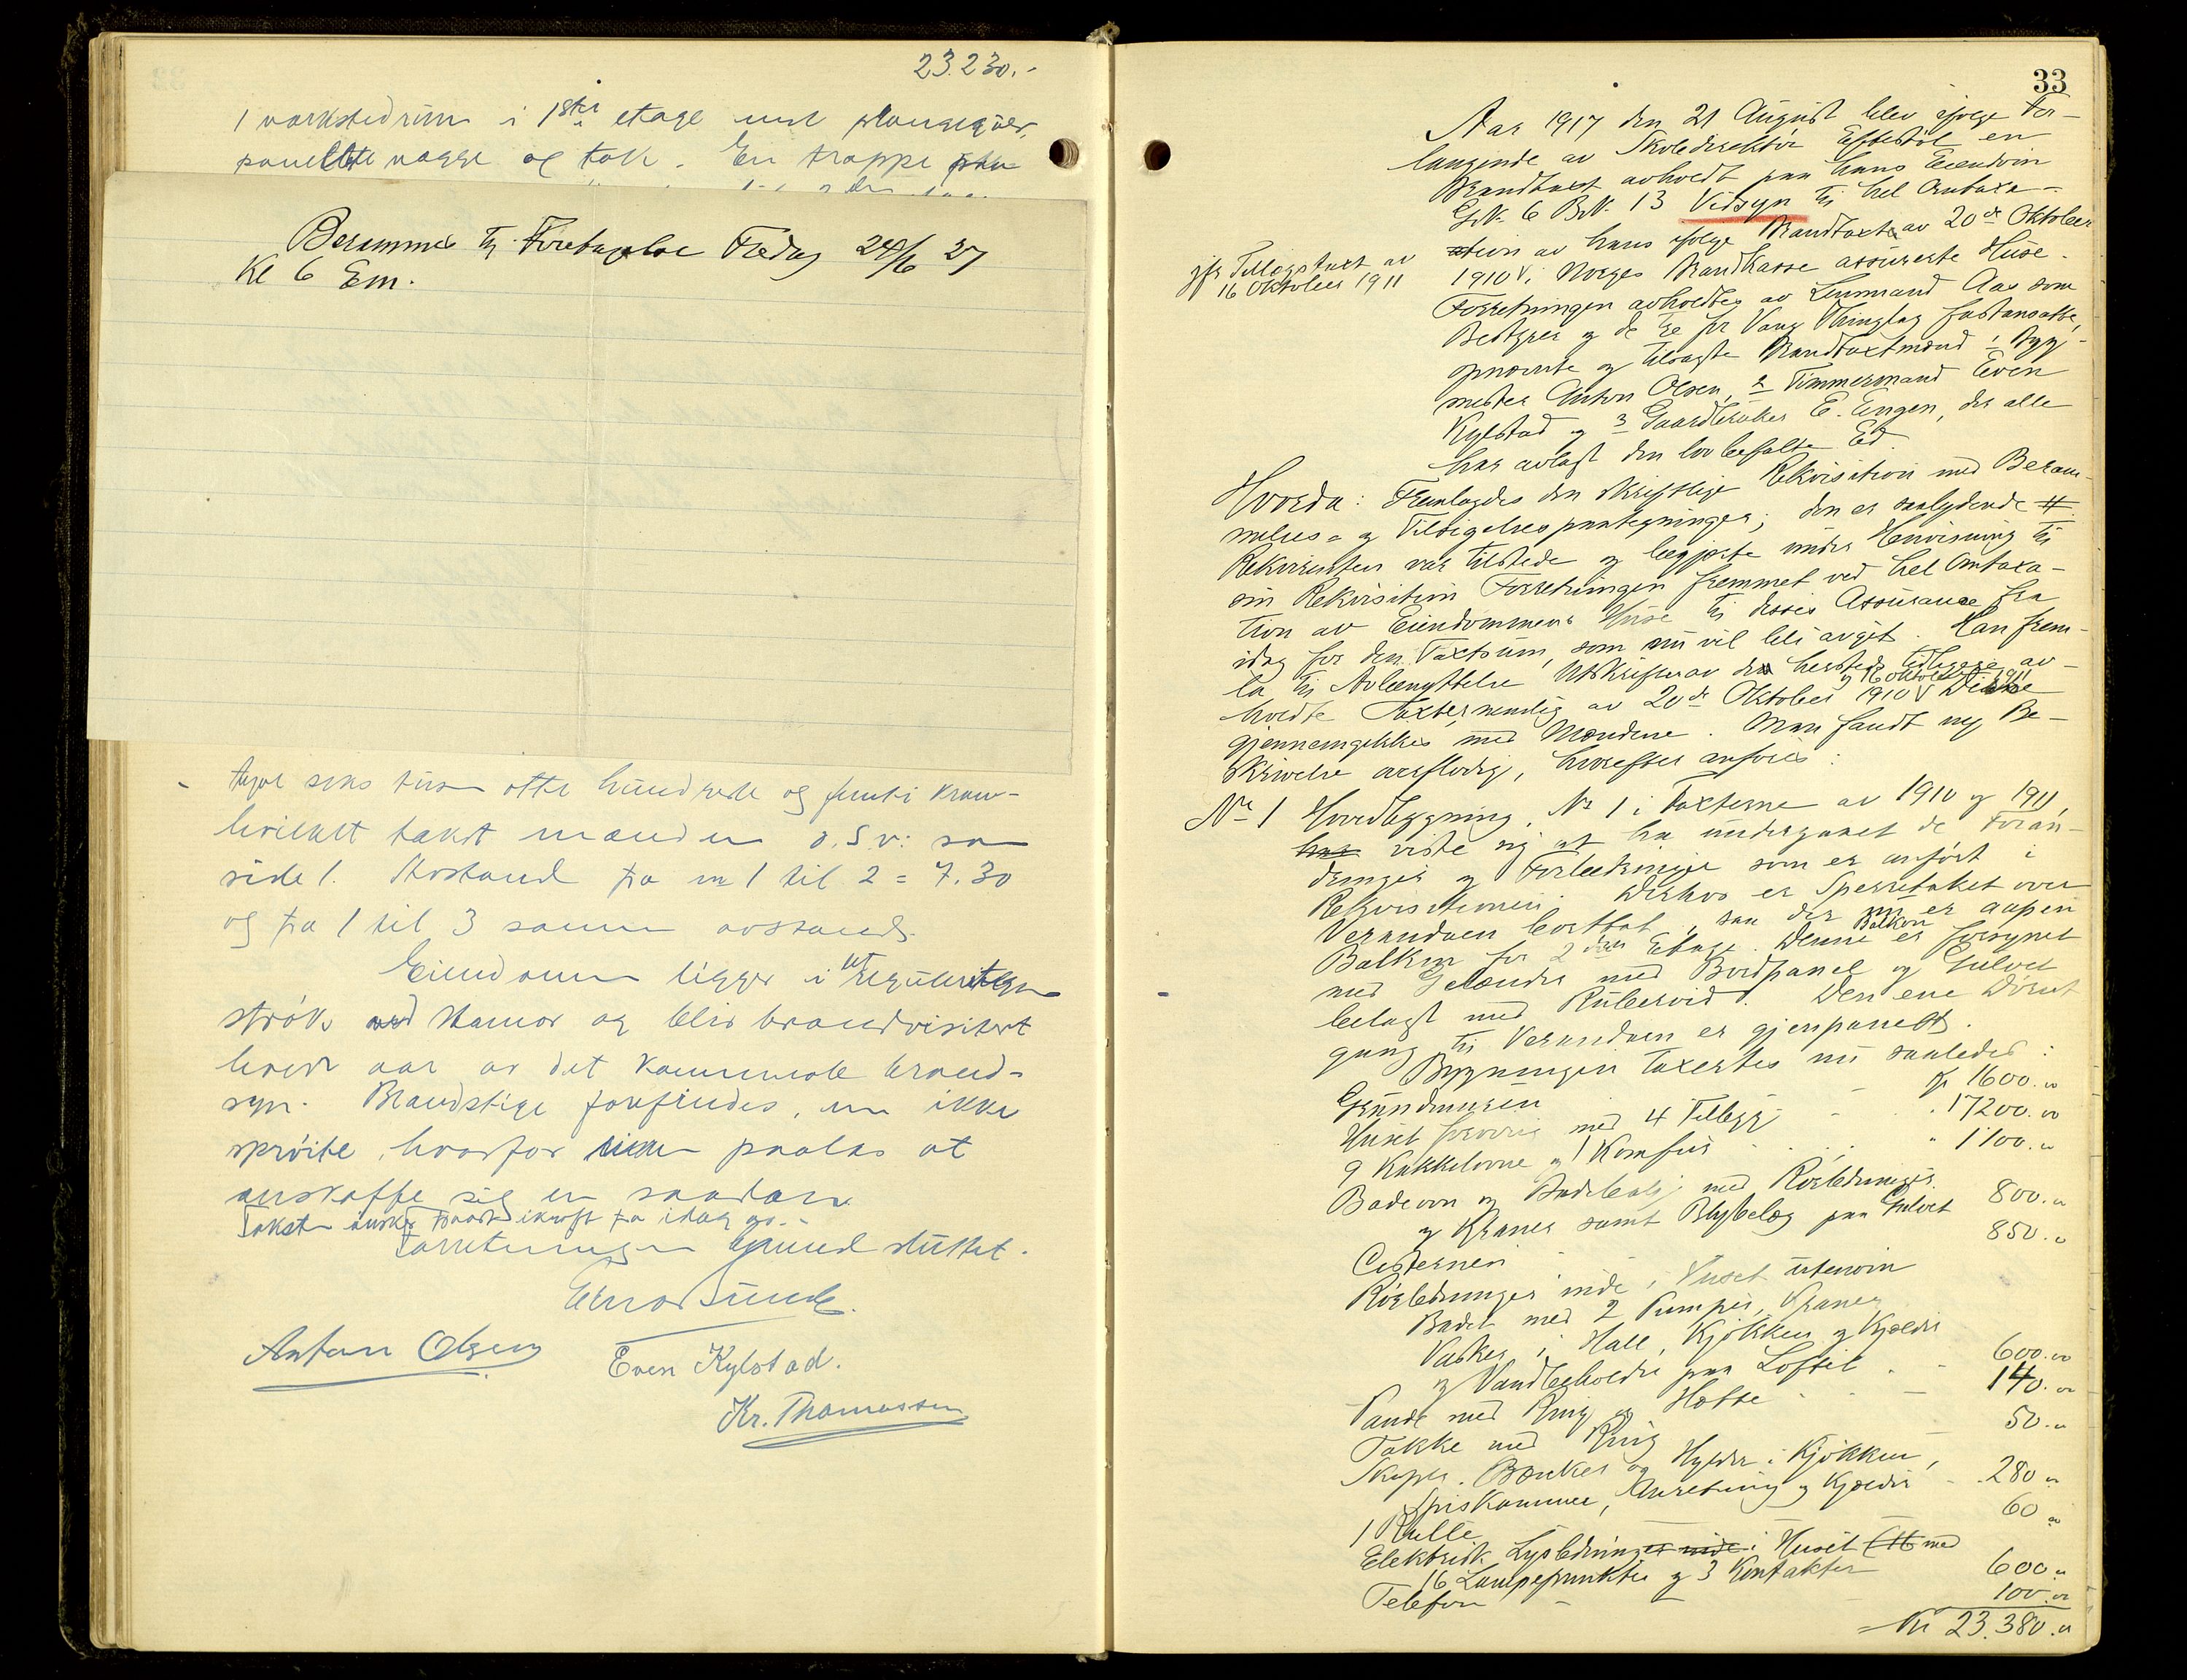 23.230.-
1 værkstedrum i 1ste etage med
panelte vægge og tak. En trappe
Berammes til Foretagelse Fredag 24/6 27
Kl 6 Em.
seks tusen otte hundrede og femti kron-
hvilket takst mænden o.s.v: som
side 1. Avstand fra no 1 til 2 = 7.30
og fra 1 til 3 samme avstand.
Eiendommen ligger i utregulerings
strøk ved Hamar og blir brandvisitert
hver aar av det kommunale brand-
syn. Brandstige forefindes, men ikke
sprøite, hvorfor paalas at
anskaffe sig en saadan.
Taksten ønskes traadt ikraft fra idag av.
Forretningen dermed sluttet.
Anton Olsen
Even Kylstad.
Kr. Thomassen
33
Aar 1917 den 21 August blev ifølge For-
langende av Skoledirektør Eftestøl en
Brandtaxt avholdt paa hans Eiendom
Gr.N. 6 Br.N. 13 Vidsyn til hel Omtaxa-
tion av hans ifølge Brandtaxt av 20de Oktober
jfr Tillægstaxt av
16 Oktober 1911
1910 V i Norges Brandkasse assurerte Huse.
Forretningen avholdtes av Lensmand Aas som
Bestyrer og de tre for Vang Thinglag fastansatte,
opnævnte og tilsagte Brandtaxtmænd 1 Byg-
mester Anton Olsen, 2 Tømmermand Even
Kylstad og 3 Gaardbruker E. Engen, der alle
har avlagt den lovbefalte Ed.
Hvorda: Fremlagdes den skriftlige Rekvisition med Beram-
melses- og Tilsigelsespaategninger; den er saalydende #
Rekvirenten var tilstede og begjærte under Henvisning til
sin Rekvisition Forretningen fremmet ved hel Omtaxa-
tion av Eiendommens Huse til disses Assurance fra
idag for den Taxtsum, som nu vil bli avgit. Han frem-
la til Avbenyttelse Utskrifter av de herstedes tidligere av-
og 16 Oktober 1911
holdte Taxter, nemlig av 20de Oktober 1910 V Disse
gjennemgikkes med Mændene. Man fandt ny Be-
skrivelse overflødig, hvorefter anføres:
No 1 Hovedbygning, No 1 i Taxterne av 1910 og 1911,
har viste sig at ha undergaaet de Foran-
dringer og Forbedringer som er anført i
Rekvisitionen. Derhos er Sperretaket over
Verandaen borttat, saa der nu er aapen
Balkon for 2den Etage. Denne Balkon er forsynet
med Gelænder med Bordpanel og Gulvet
belagt med Ruberoid. Den ene Dørut
gang til Verandaen er gjenpanelt.
Bygningen taxertes nu saaledes:
Grundmuren Kr 1600.00
Huset forøvrig med 4 Tillegg - 17200.00
9 Kakkelovne og 1 Komfur " 1100.00
Badeovn og Badebalje med Rørledninger
og Kraner samt Blybelæg paa Gulvet 800.00
Cisternen 850.00
Rørledninger inde i Huset utenom
Badet med 2 Pumper, Kraner
Vasker i Hall, Kjøkken og Kjælder
og Vandbeholder paa Loftet 600.00
Pande med Ring og Hætte 140.00
Takke med Ring 50.00
Skaper. Bænker og Hylder i Kjøkken,
Spiskammer, Anretning og Kjælder 280.00
1 Rulle 60.00
Elektrisk Lysledninger inde i Huset (16 med
16 Lampepunkter og 3 Kontakter 600.00
Telefon 100.00
= Kr 23.380.00